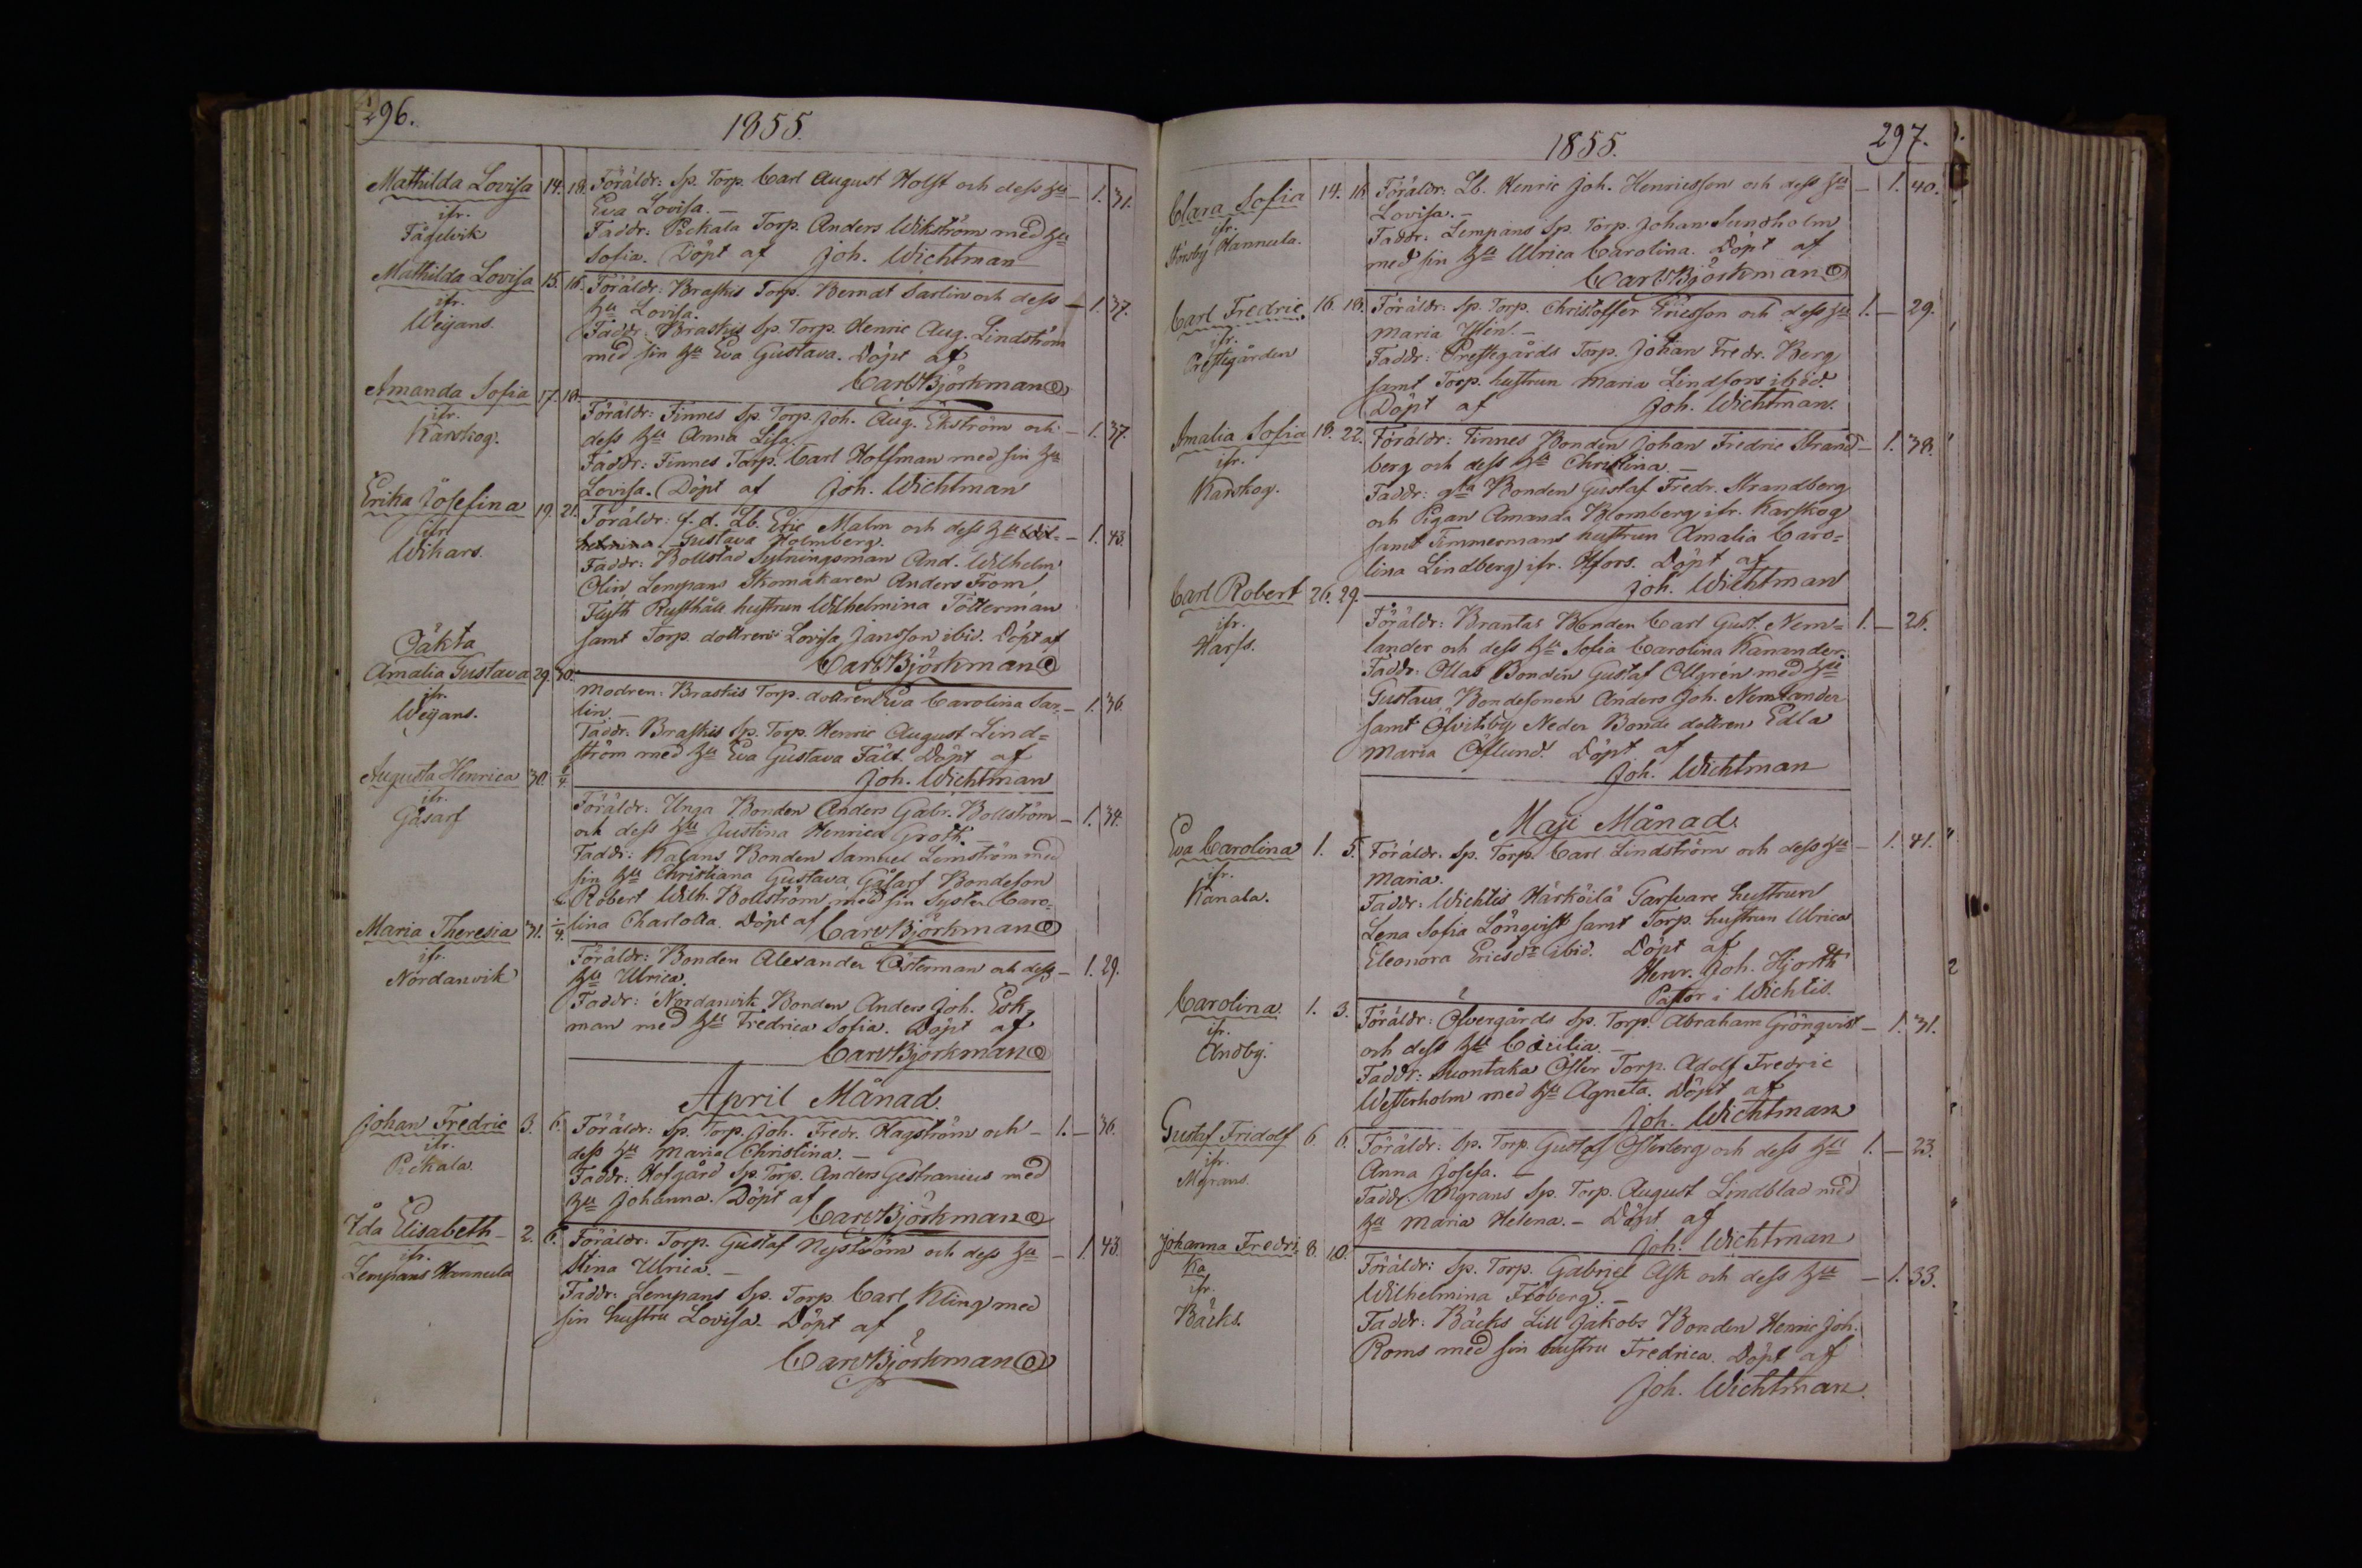 296.
1855.
Mathilda Lovisa 14. 18. Föräldr: Sp. Torp. Carl August Holst och dess hu — 1. 31.
ifr. Eva Lovisa. —
Fågelvik Faddr: Pickala Torp. Anders Wikström med hu
Sofia. Döpt af Joh. Wichtman
Mathilda Lovisa 15. 18. Föräldr: Braskis Torp. Berndt Sarlin och dess — 1. 37.
ifr. hu Lovisa.
Weijans. Faddr: Braskis Sp. Torp. Henric Aug. Lindström
med sin hu Eva Gustava. Döpt af
Carl Björkman
Amanda Sofia 17. 18. Föräldr: Finnes Sp. Torp. Joh. Aug. Ekström och — 1. 37.
ifr. dess hu Anna Lisa. —
Karskog. Faddr: Finnes Torp. Carl Hoffman med sin hu
Lovisa. Döpt af Joh. Wichtman
Erika Josefina 19. 21. Föräldr: f. d. Lb. Eric Malm och dess hu Wil= — 1. 43.
ifr. helmina Gustava Holmberg.
Wikars. Faddr: Bollstad Sytningsman And. Wilhelm
Olin Lempans Skomakaren Anders From
Rusthåll hustrun Wilhelmina Tötterman
samt Torp. dottren Lovisa Jansson ibid. Döpt af
Carl Björkman
Oäkta
Amalia Gustava 29. 30. Modren: Braskis Torp. dottren Eva Carolina Sar= — 1. 36.
ifr. lin —
Weijans. Faddr: Braskis Sp. Torp. Henric August Lind=
ström med hu Eva Gustava Fält. Döpt af
Joh. Wichtman
Augusta Henrica 30. Föräldr: Unga Bonden Anders Gabr. Bollström — 1. 34.
ifr. och dess hu Justina Henrica Groth. —
Gåsarf Faddr: Kalans Bonden Samuel Lemström med
sin hu Christiana Gustava Gåsarf Bondeson
Robert Wilh. Bollström med sin Syster Caro=
lina Charlotta. Döpt af Carl Björkman
Maria Theresia 31. 1/4. Föräldr: Bonden Alexander Österman och dess — 1. 29.
ifr. hu Ulrica.
Nordanvik Faddr: Nordanvik Bonden Anders Joh. Esk=
man med hu Fredrica Sofia. Döpt af
Carl Björkman
April Månad.
Johan Fredric 3. 6. Föräldr: Sp. Torp. Joh. Fredr. Hagström och — 1. — 36.
ifr. dess hu Maria Christina. —
Pickala. Faddr: Hofgård Sp. Torp. Anders Gestranius med
hu Johanna. Döpt af
Carl Björkman
Ida Elisabeth 2. 6. Föräldr: Torp. Gustaf Nyström och dess hu — 1. 43.
ifr. Stina Ulrica. —
Lempans Hannula Faddr: Lempans Sp. Torp. Carl Kling med
sin hustru Lovisa. Döpt af
Carl Björkman
297.
1855.
Clara Sofia 14. 18. Föräldr: Lb. Henric Joh. Henricsson och dess hu — 1. 40.
ifr. Lovisa. —
Störsby Hannula. Faddr: Lempans Sp. Torp. Johan Sundholm
med sin hu Ulrica Carolina. Döpt af
Carl Björkman
Carl Fredric 16. 18. Föräldr: Sp. Torp. Christoffer Ericsson och dess hu 1. — 29.
ifr. Maria —
Prestegården Faddr: Prestegårds Torp. Johan Fredr. Berg
samt Torp. hustrun Maria Lindfors ibid.
Döpt af Joh. Wichtman.
Amalia Sofia 18. 22. Föräldr: Finnes Bonden Johan Fredric Strand= — 1. 38.
ifr. berg och dess hu Christina. —
Karskog. Faddr: gla Bonden Gustaf Fredr. Strandberg
och Pigan Amanda Blomberg ifr. Karskog
samt Timmermans hustrun Amalia Caro=
lina Lindberg ifr. Hfors. Döpt af
Joh. Wichtman
Carl Robert 26. 29. Föräldr: Brantas Bonden Carl Gust. Nem= 1. — 26.
ifr. lander och dess hu Sofia Carolina Kanander.
Harfs. Faddr: Ollas Bonden Gustaf Ollgrén med hu
Gustava, Bondesonen Anders Joh. Nemlander
samt Öfvitsby Neder Bonde dottren Edla
Maria Öflund. Döpt af
Joh. Wichtman
Maji Månad.
Eva Carolina 1. 5. Föräldr. Sp. Torp. Carl Lindström och dess hu — 1. 41.
ifr. Maria.
Kanala. Faddr: Wichtis Härköilä Garfvare hustrun
Lena Sofia Lönqvist samt Torp. hustrun Ulrica
Eleonora Ericsdr ibid. Döpt af
Henr. Joh. Hjorth
Pastor i Wichtis.
Carolina 1. 3. Föräldr: Öfvergårds Sp. Torp. Abraham Grönqvist — 1. 31.
ifr. och dess hu Cecilia. —
Andby. Faddr: Suontaka Öfver Torp. Adolf Fredric
Westerholm med hu Agneta. Döpt af
Joh. Wichtman
Gustaf Fridolf 6 6. Föräldr: Sp. Torp. Gustaf Österberg och dess hu 1. — 23.
ifr. Anna Josefa. —
Myrans. Faddr: Myrans Sp. Torp. August Lindblad med
hu Maria Helena. — Döpt af
Joh. Wichtman
Johanna Fredri= 8. 10. Föräldr: Sp. Torp. Gabriel Ask och dess hu — 1. 33.
ka Wilhelmina Fröberg. —
ifr. Faddr: Bäcks Lill Jakobs Bonden Henric Joh.
Bäcks. Roms med sin hustru Fredrica. Döpt af
Joh. Wichtman.